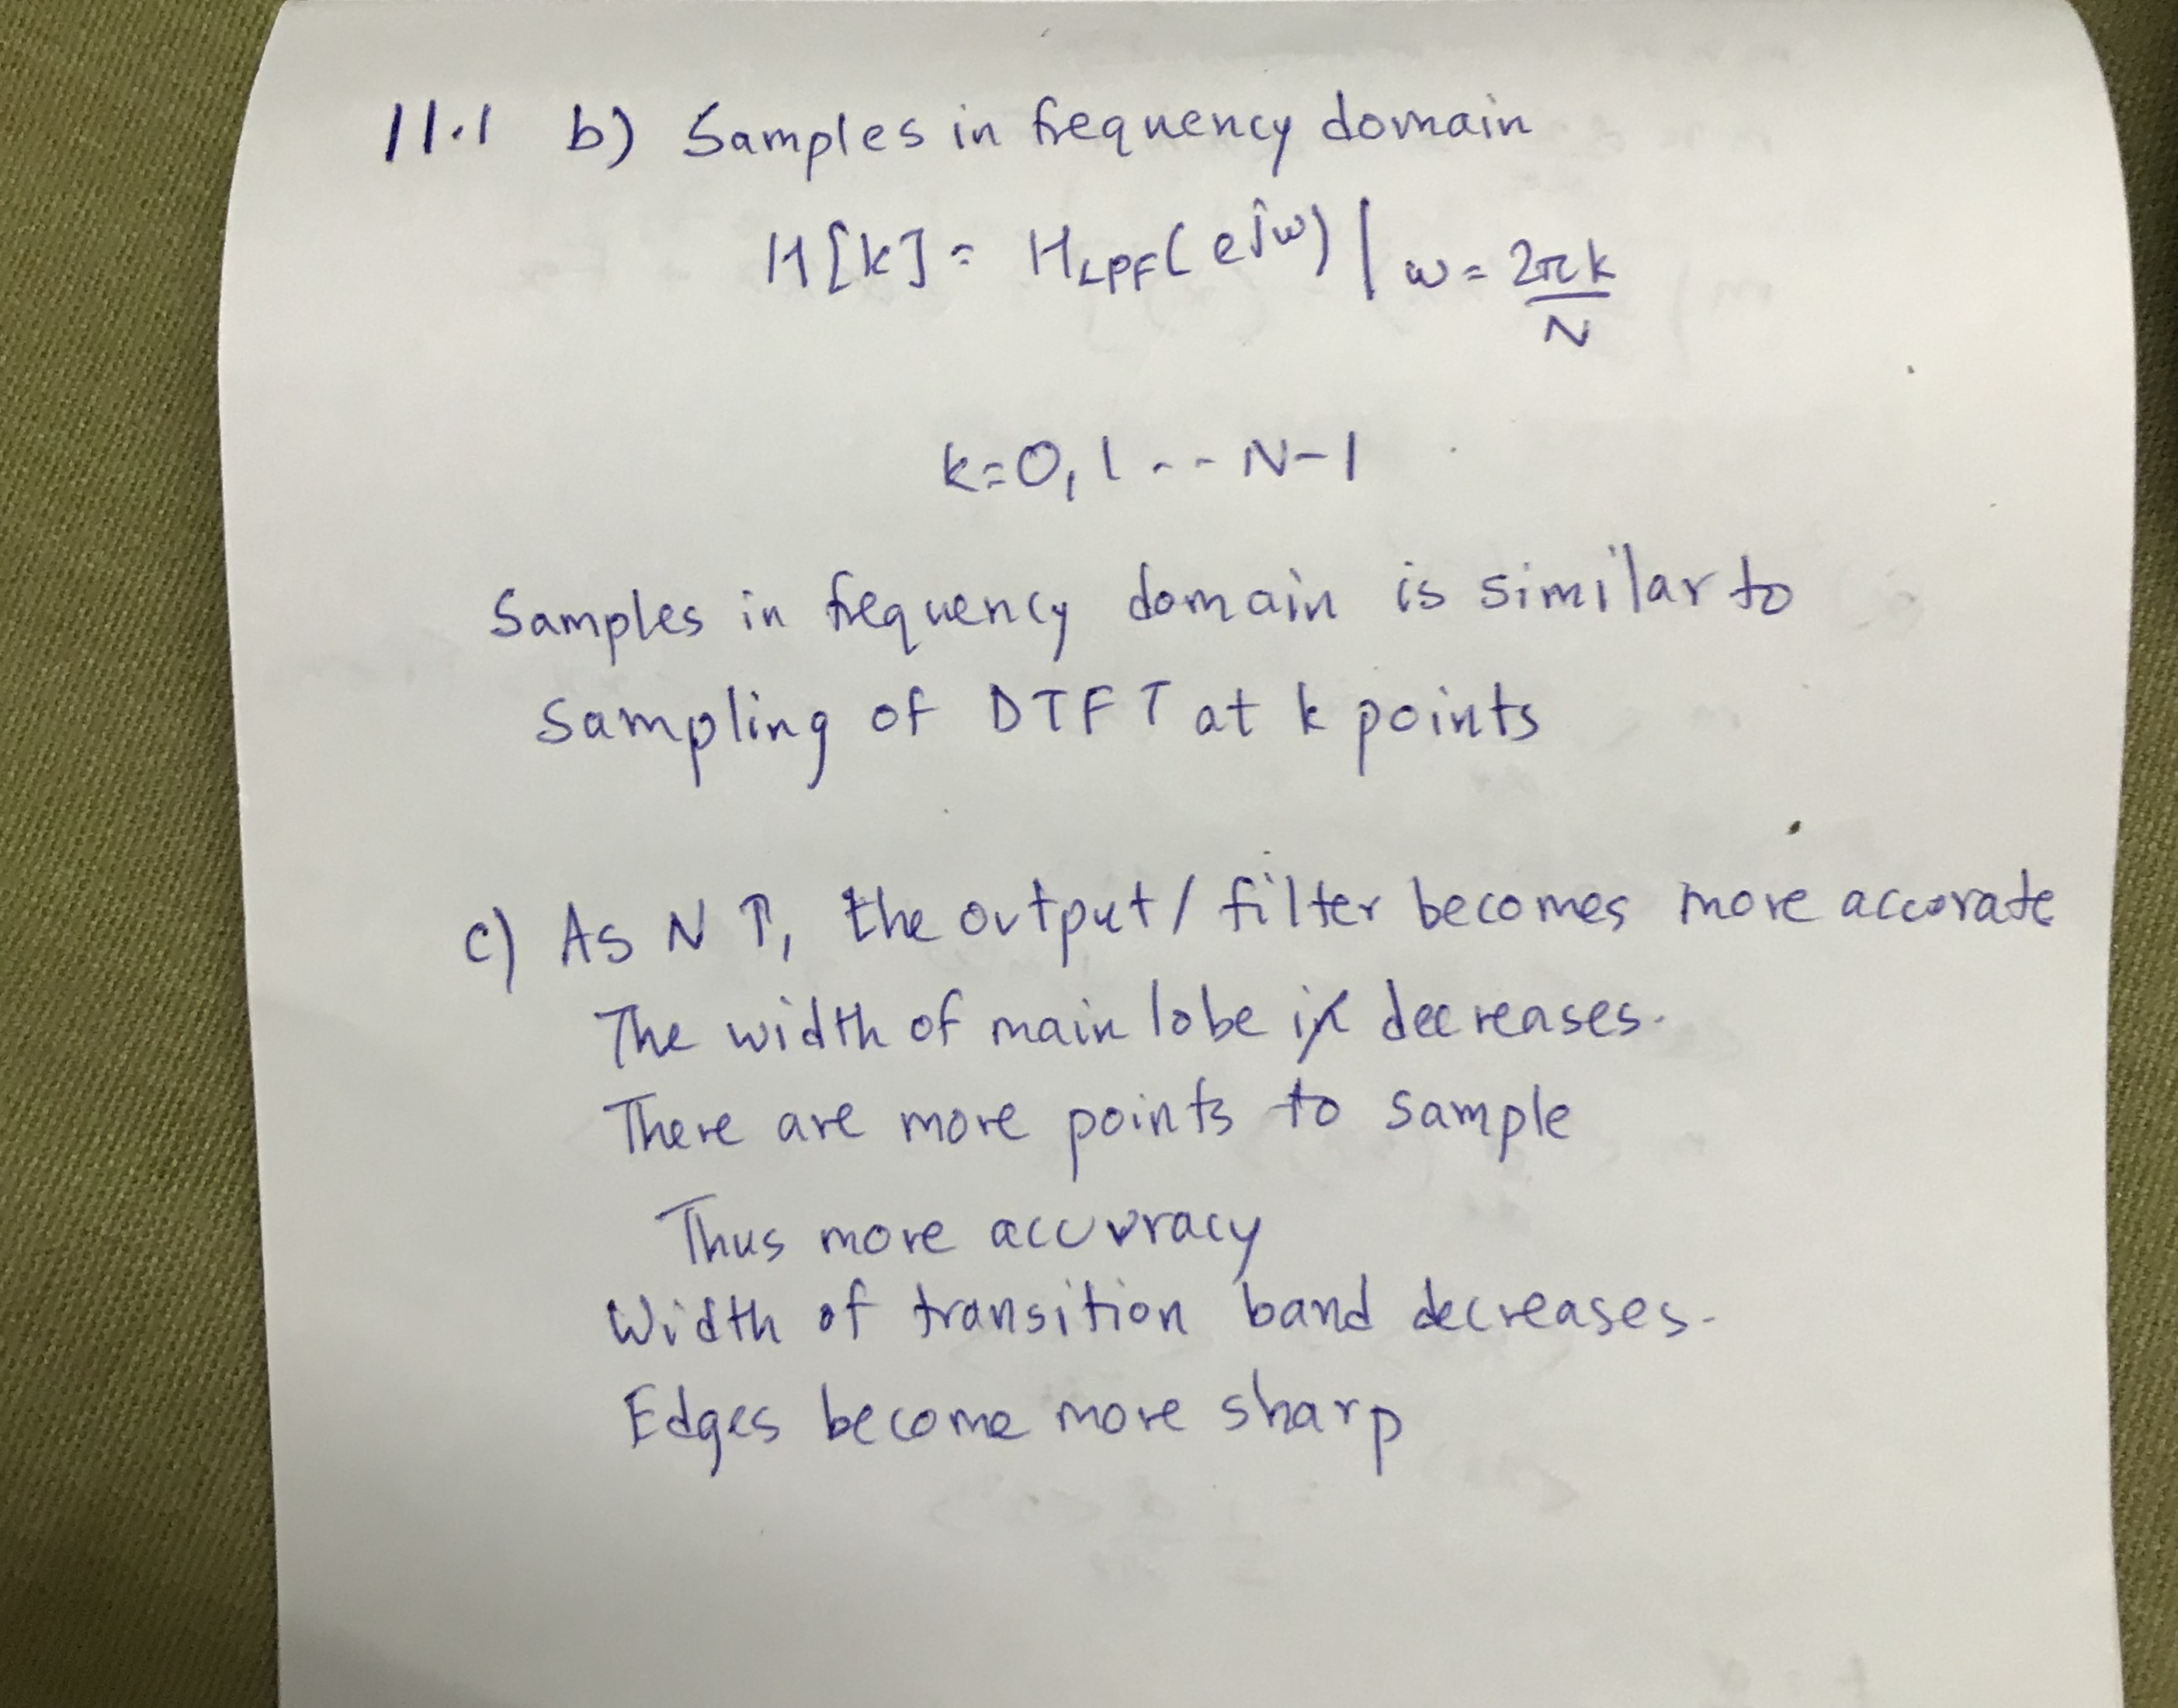 11.1 b) Samples in frequency domain
H[k] = H_LPF(e^jω) | ω = 2πk/N
k=0,1 -- N-1
Samples in frequency domain is similar to
Sampling of DTFT at k points
c) As N ↑, the output / filter becomes more accurate
The width of main lobe decreases.
There are more points to sample
Thus more accuracy
Width of transition band decreases.
Edges become more sharp